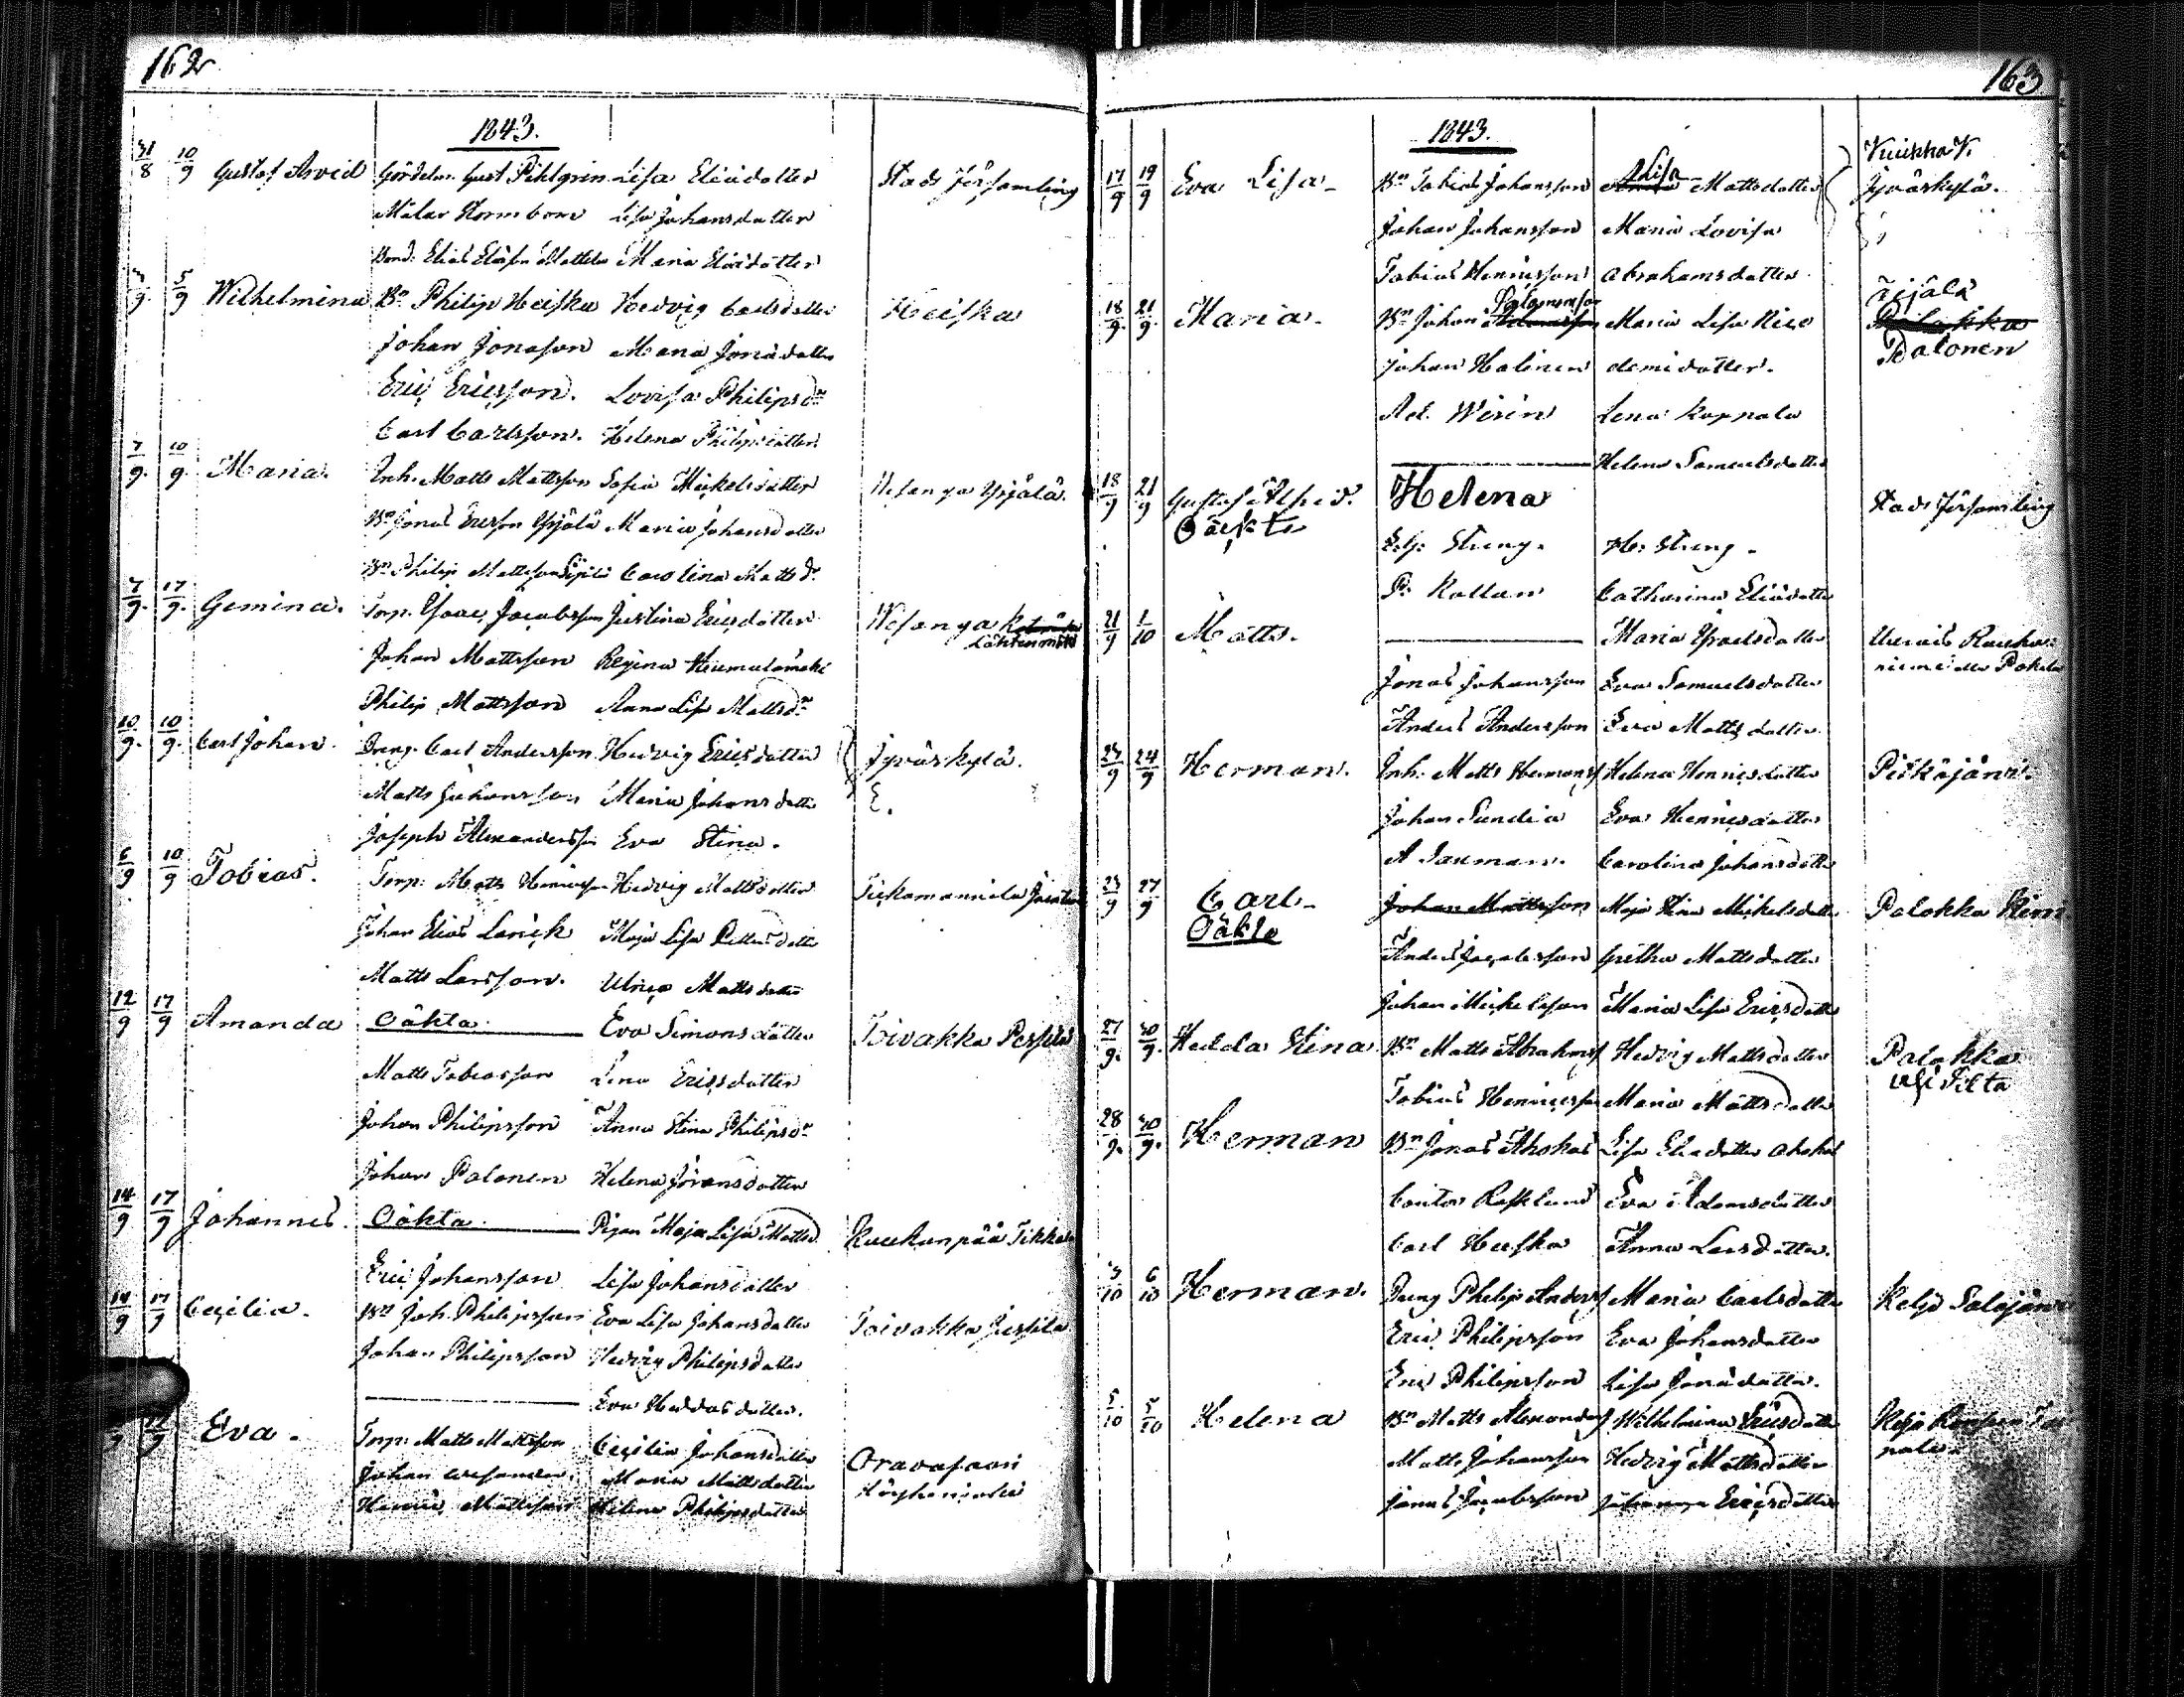 162
1843.
31/8 10/9 Gustaf Arvid Gördelm. Gust Pihlgrin Lisa Eliædotter Stads församling
Målar Stormbom Lisa Johansdotter
Bond. Elias Eliæson Mattila Maria Eliædotter
5/9 Wilhelmina Bn Philip Heiska Hedvig Carlsdotter Heiska
Johan Jonasson Maria Jonædotter
Eric Ericsson. Lovisa Philipsdr
Carl Carlsson. Helena Philipsdotter
7/9. 10/9. Maria. Inh. Matts Mattsson Sofia Mickelsdotter Wesanga Yrjälä.
Bn Jonas Ericsson Yrjälä Maria Johansdotter
Bn Philip Mattsson Carolina Matts dr
7/9. 17/9. Gemina. Torp. Ysaac Jacobsson Justina Ericsdotter Wesanga
Lähteenmäki
Johan Mattsson Regina Humalamäki
Philip Mattsson Anna Lisa Mattsdr
10/9. 10/9. Carl Johan. Dreng. Carl Andersson Hedvig Ericsdotter Jyväskylä.
Matts Johansson Maria Johansdotter
Joseph Alexandersson Eva Stina.
6/9 10/9 Tobias. Torp. Matts Henricsson Hedvig Mattsdotter Tickamannila
Johan Elias Lenick Maja Lisa Pettersdotter
Matts Larsson. Ulrica Mattsdotter
12/9 17/9 Amanda Oäkta Eva Simonsdotter Toivakka
Matts Tobiasson Lena Ericsdotter
Johan Philipsson Anna Stina Philipsdr
Johan Palonen Helena Göransdotter
14/9 17/9 Johannes. Oäkta Pigan Maja Lisa Mattsd. Kuukanpää Tikka
Eric Johansson Lisa Johansdotter
14/9 17/9 Cecilia. Bn Joh. Philipsson Eva Lisa Johansdotter Toivakka
Johan Philipsson Hedvig Philipsdotter
Eva Heddasdotter.
Eva. Torp. Matts Mattsson Cecilia Johansdotter Oravasaari
Johan Maria Mattsdotter
Henric Mattsson Helena Philipsdotter
163
1843.
17/9 19/9 Eva Lisa Bn Tobias Johansson Lisa Mattsdotter Vuikka V. Jyväskylä.
Johan Johansson Maria Lovisa
Tobias Henricsson Abrahamsdotter
18/9. 21/9. Maria Bn Johan Salomonsson Maria Lisa Nico Äijälä
Palokka
Palonen
Johan Halinen demidotter.
Ad. Wirén Lena Kapnala
Helena Samuelsdotter
18/9 21/9 Gustaf Alfred. Oäckta Helena Stads församling
E. J. Streng. H. Streng
P. Kollan Catharina Eliædotter
21/9 1/10 Matts. Maria Ysaelsdotter
Jonas Johansson Eva Samuelsdotter
Anders Andersson Eva Mattsdotter
23/9 24/9 Herman. Inh. Matts Hermanss Helena Henricsdotter Pitkäjärvi
Johan Sundia Eva Henricsdotter
A Sauman. Carolina Johansdotter
23/9 27/9 Carl Oäkta Johan Mattsson Maja Stina Mickelsdotter Palokka
Anders Jacobsson Gretha Mattsdotter
Johan Mickelsson Maria Lisa Ericsdotter
27/9. 30/9. Hedda Stina Bn Matts Abrahamss Hedvig Mattsdotter Palokka
Tobias Henricsson Maria Mattsdotter
28/9. 30/9. Herman Bn Jonas Ahokas Lisa Eliædotter Ahokas
Cantor Eva Adamsdotter
Carl Heiska Anna Larsdotter.
3/10 6/10 Herman. Dreng Philip Anderss Maria Carlsdotter Keljo Salojärvi
Eric Philipsson Eva Johansdotter
Eric Philipsson Lisa Jonædotter.
5/10 5/10 Helena Bn Matts Alexanderss Wilhelmina Ericsdotter Keljo
Matts Johansson Hedvig Mattsdotter
Jonas Jacobsson Johanna Ericsdotter